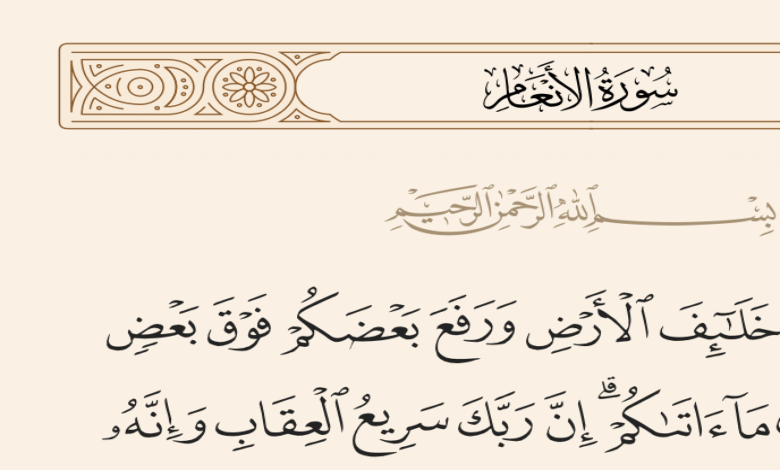 سُورَةُ الأَنْعَامِ
بِسْمِ ٱللَّهِ ٱلرَّحْمَٰنِ ٱلرَّحِيمِ
خَلَـٰٓئِفَ ٱلْأَرْضِ وَرَفَعَ بَعْضَكُمْ فَوْقَ بَعْضٍ
مَآ ءَاتَىٰكُمْ ۗ إِنَّ رَبَّكَ سَرِيعُ ٱلْعِقَابِ وَإِنَّهُۥ